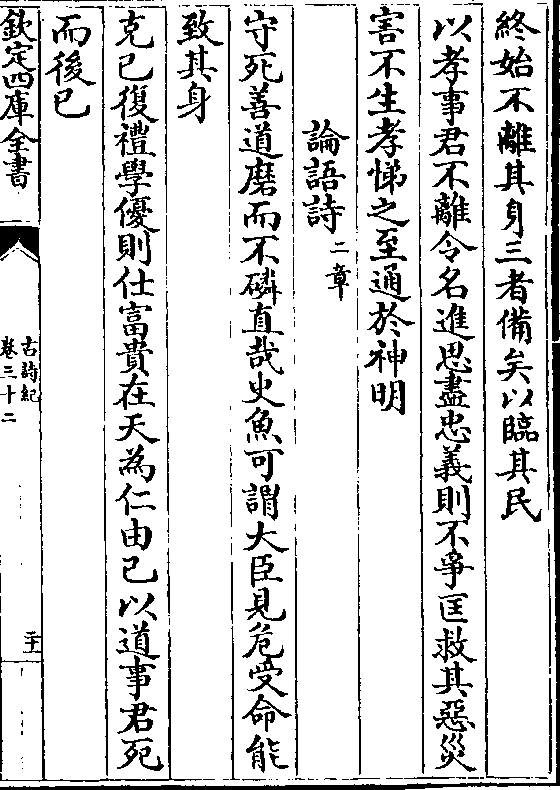 終始不離其身三者備矣以臨其民
以孝事君不離令名進思盡忠義則不爭匡救其惡災
害不生孝悌之至通於神明
論語詩二章
守死善道磨而不磷直哉史魚可謂大臣見危受命能
致其身
克己復禮學優則仕富貴在天為仁由己以道事君死
而後已
欽定四庫全書
古詩紀
卷三十二
二十